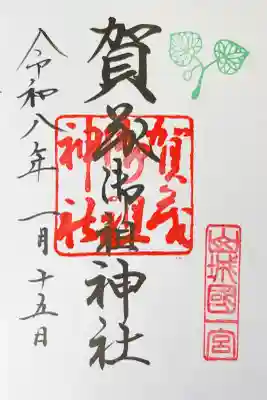 山城國一宮
賀茂御祖神社
賀茂御祖神社
令和八年一月十五日